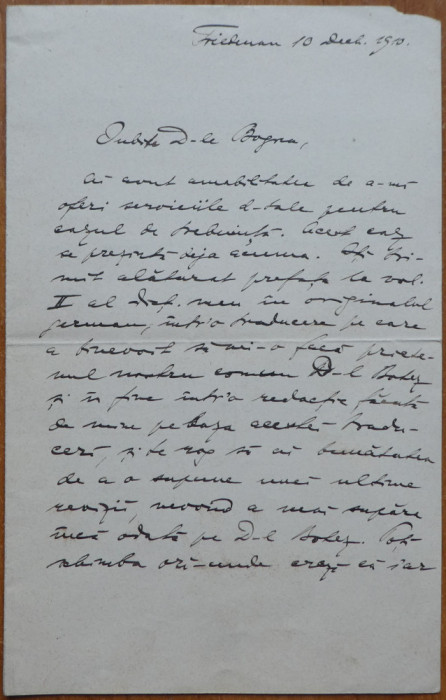 Friedenau 10 Dech. 1910.
Iubite D-le Bogrea,
Ai avut amabilitatea de a-mi
oferi serviciile d-tale pentru
cazul de trebuință. Acest caz
se prezintă deja acuma. Îți tri-
mit alăturat prefața la vol.
II al dicț. meu în originalul
german, într'o traducere pe care
a binevoit să mi-o facă priete-
nul nostru comun D-l Botez
și în fine într'o redacție făcută
de mine pe baza acestei tradu-
ceri, și te rog să ai bunătatea
de a o supune unei ultime
revizii, nevrând a mai supăra
încă odată pe D-l Botez. Poți
schimba ori-unde crezi că iar